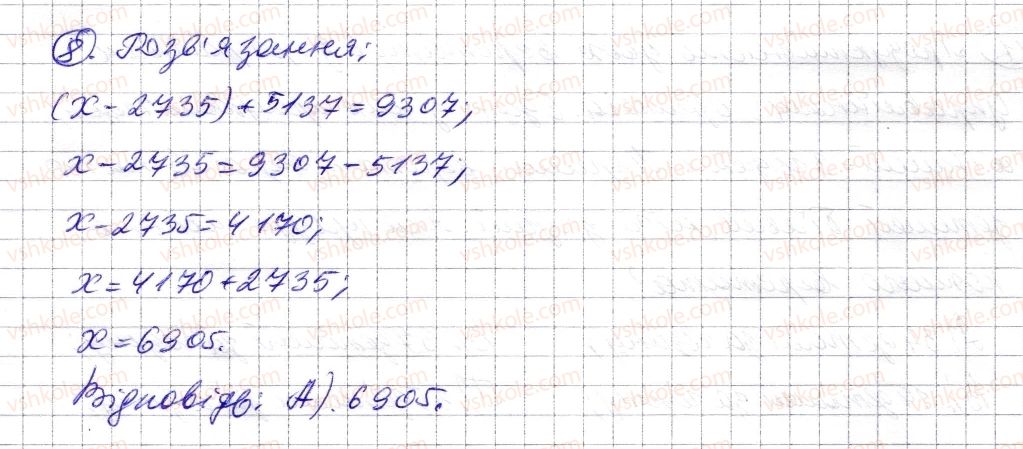 8. Розв'язання:
(x - 2735) + 5137 = 9307;
x - 2735 = 9307 - 5137;
x - 2735 = 4170;
x = 4170 + 2735;
x = 6905.
Відповідь: А). 6905.